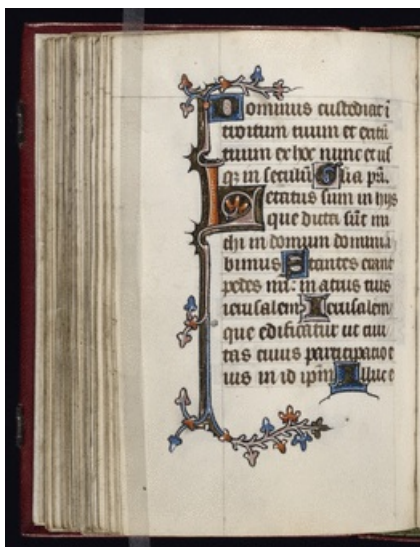 Dominus custodiat ī
troitum tuum et exitū
tuum ex hoc nunc et us
qꝫ in seculū Glīa pr̄i.
Letatus sum in hijs
que dicta sūt mi
chi in domum domini i
bimus Stantes erant
pedes nr̄i: in atrijs tuis
ierusalem Ierusalem
que edificatur ut ciui
tas cuius participatio e
ius in id ipm̄ Illuc e